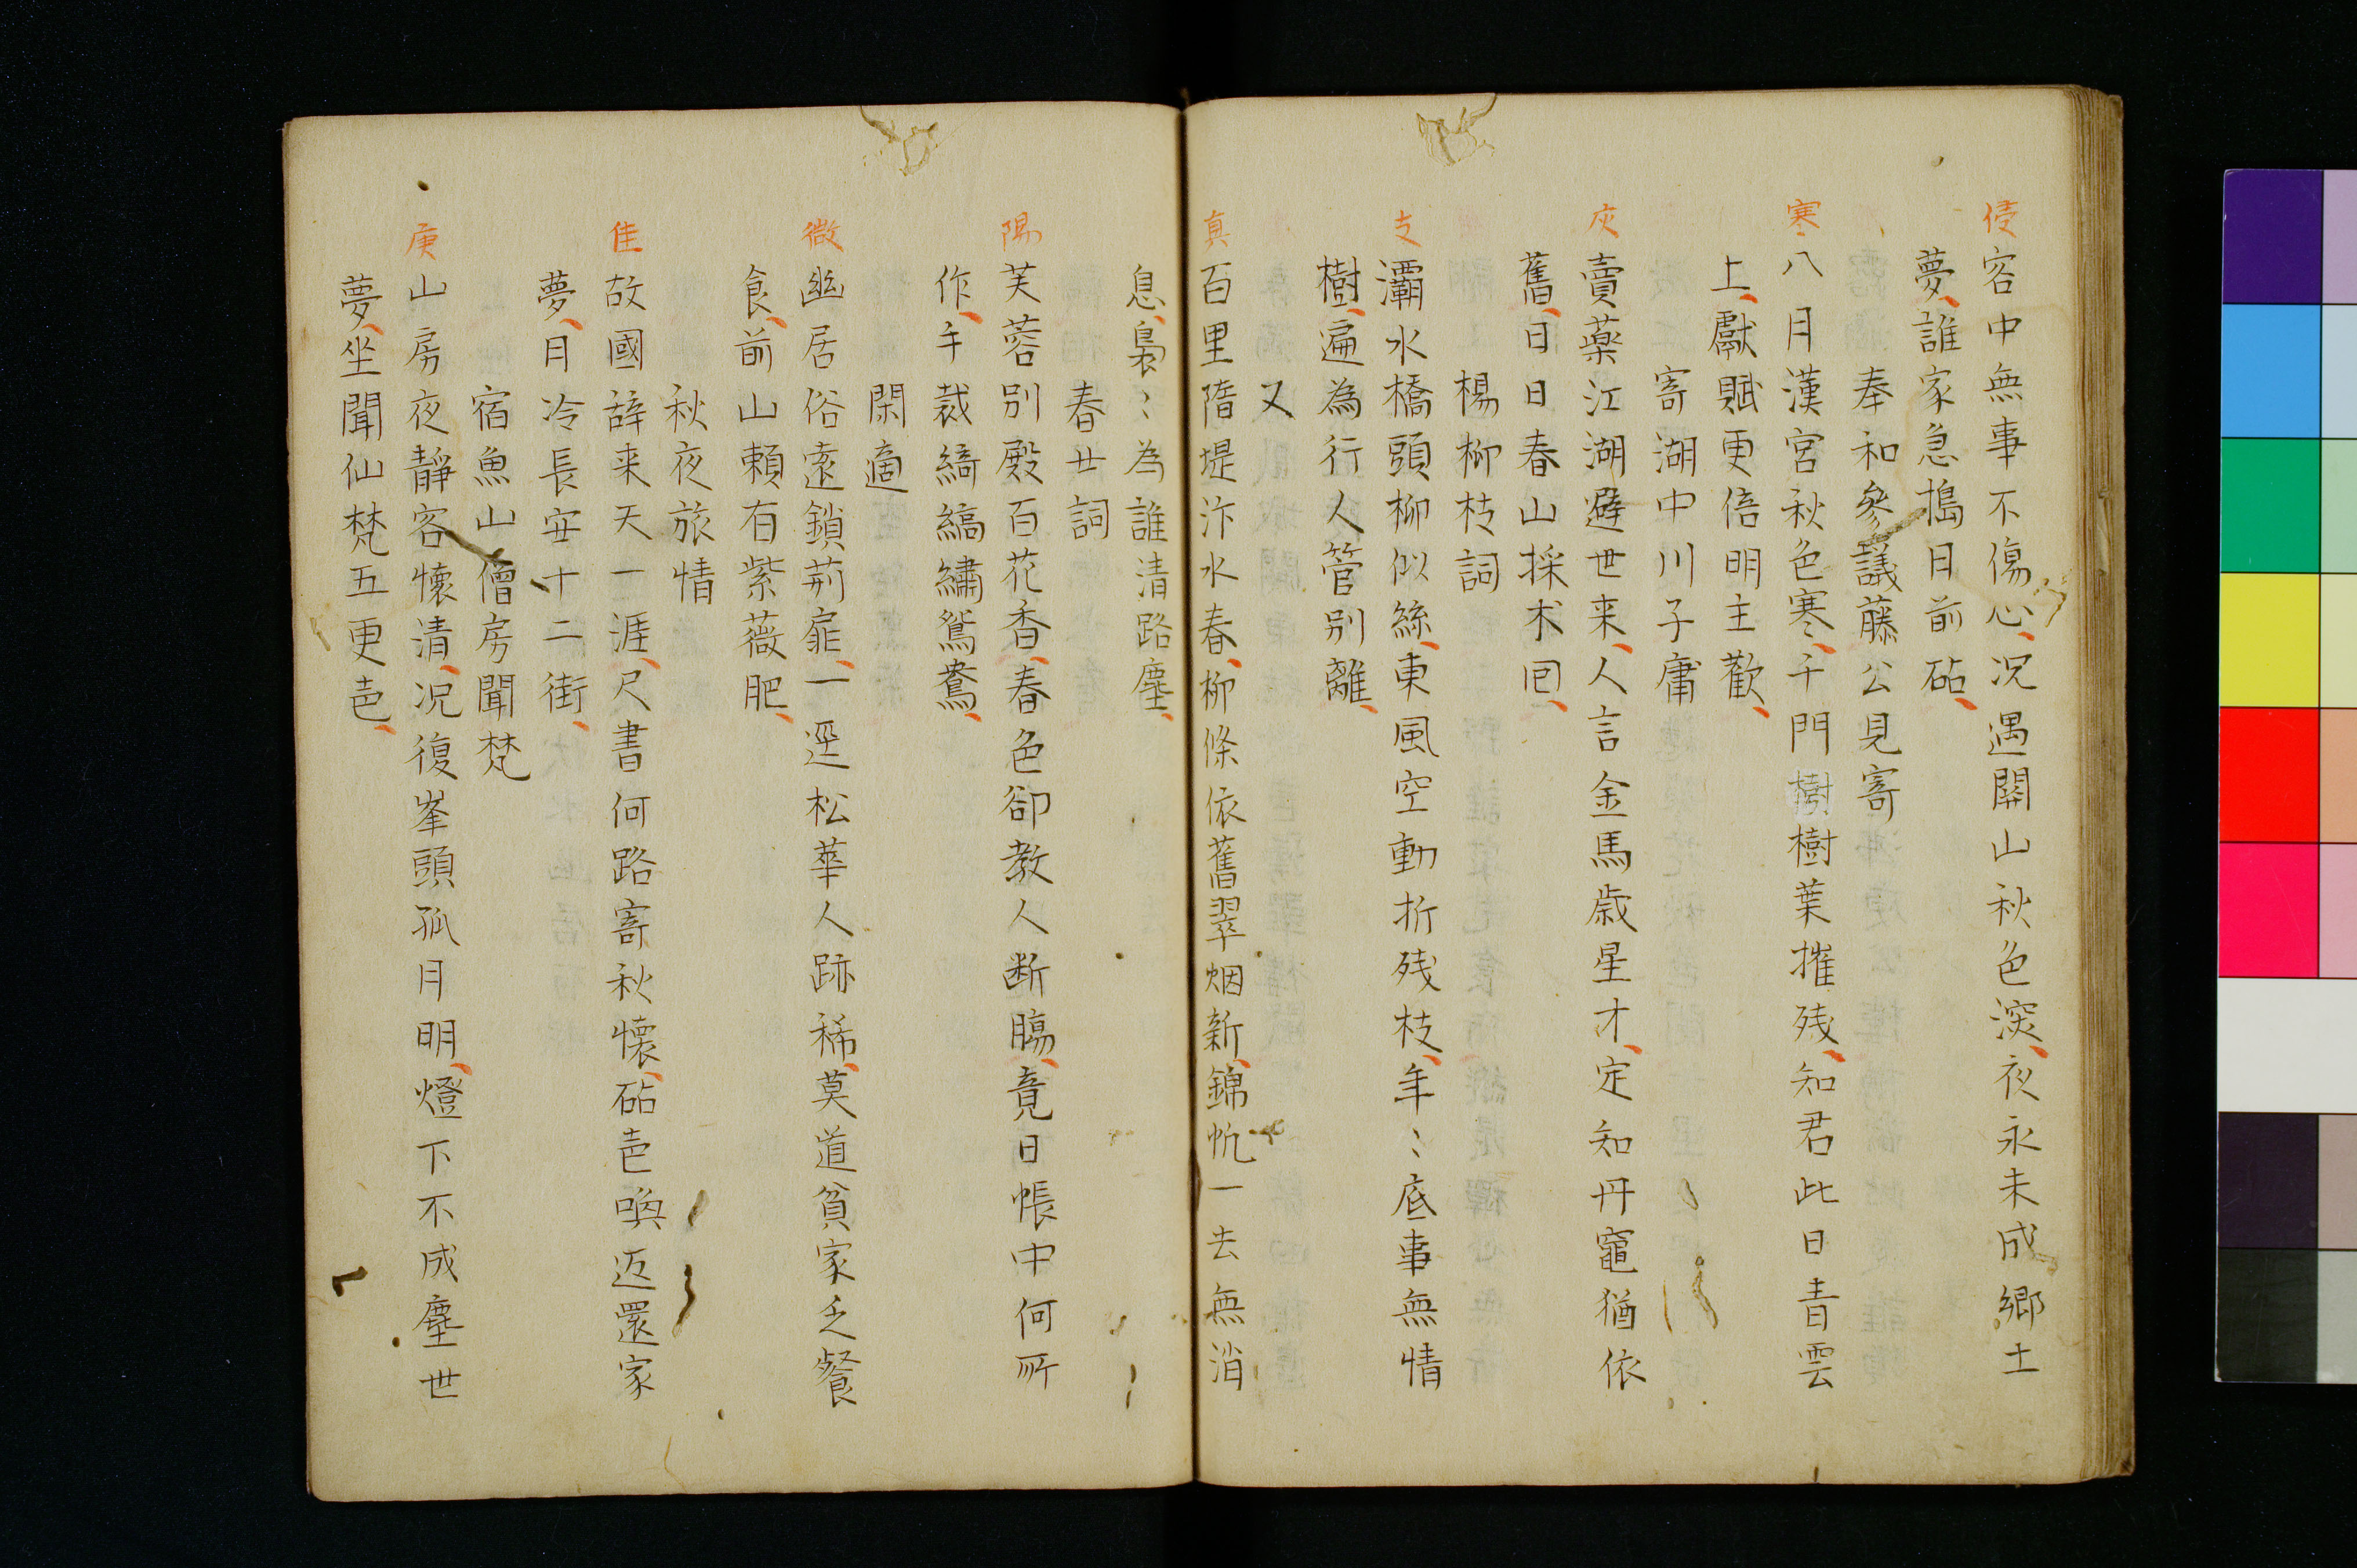 侵 客中無事不傷心況遇關山秋色深夜永未成郷土
夢誰家急搗月前砧
奉和參議藤公見寄
寒 八月漢宮秋色寒千門樹樹葉摧残知君此日青雲
上獻賦更倍明主歡
寄湖中川子庸
灰 賣藥江湖避世来人言金馬歳星才定知丹竈猶依
舊日日春山採朮回
楊柳枝詞
支 灞水橋頭柳似絲東風空動折残枝年〻底事無情
樹遍為行人管別離
又
真 百里隋堤汴水春柳條依舊翠烟新錦帆一去無消
息裊〻為誰清路塵
春女詞
陽 芙蓉別殿百花香春色卻教人断膓竟日帳中何所
作手裁綺縞繡鴛鴦
閑適
微 幽居俗遠鎖荊扉一逕松華人跡稀莫道貧家乏餐
食前山頼有紫薇肥
秋夜旅情
佳 故國辞来天一涯尺書何路寄秋懐砧声喚返還家
夢月冷長安十二街
宿魚山僧房聞梵
庚 山房夜静客懐清况復峯頭孤月明燈下不成塵世
夢坐聞仙梵五更声